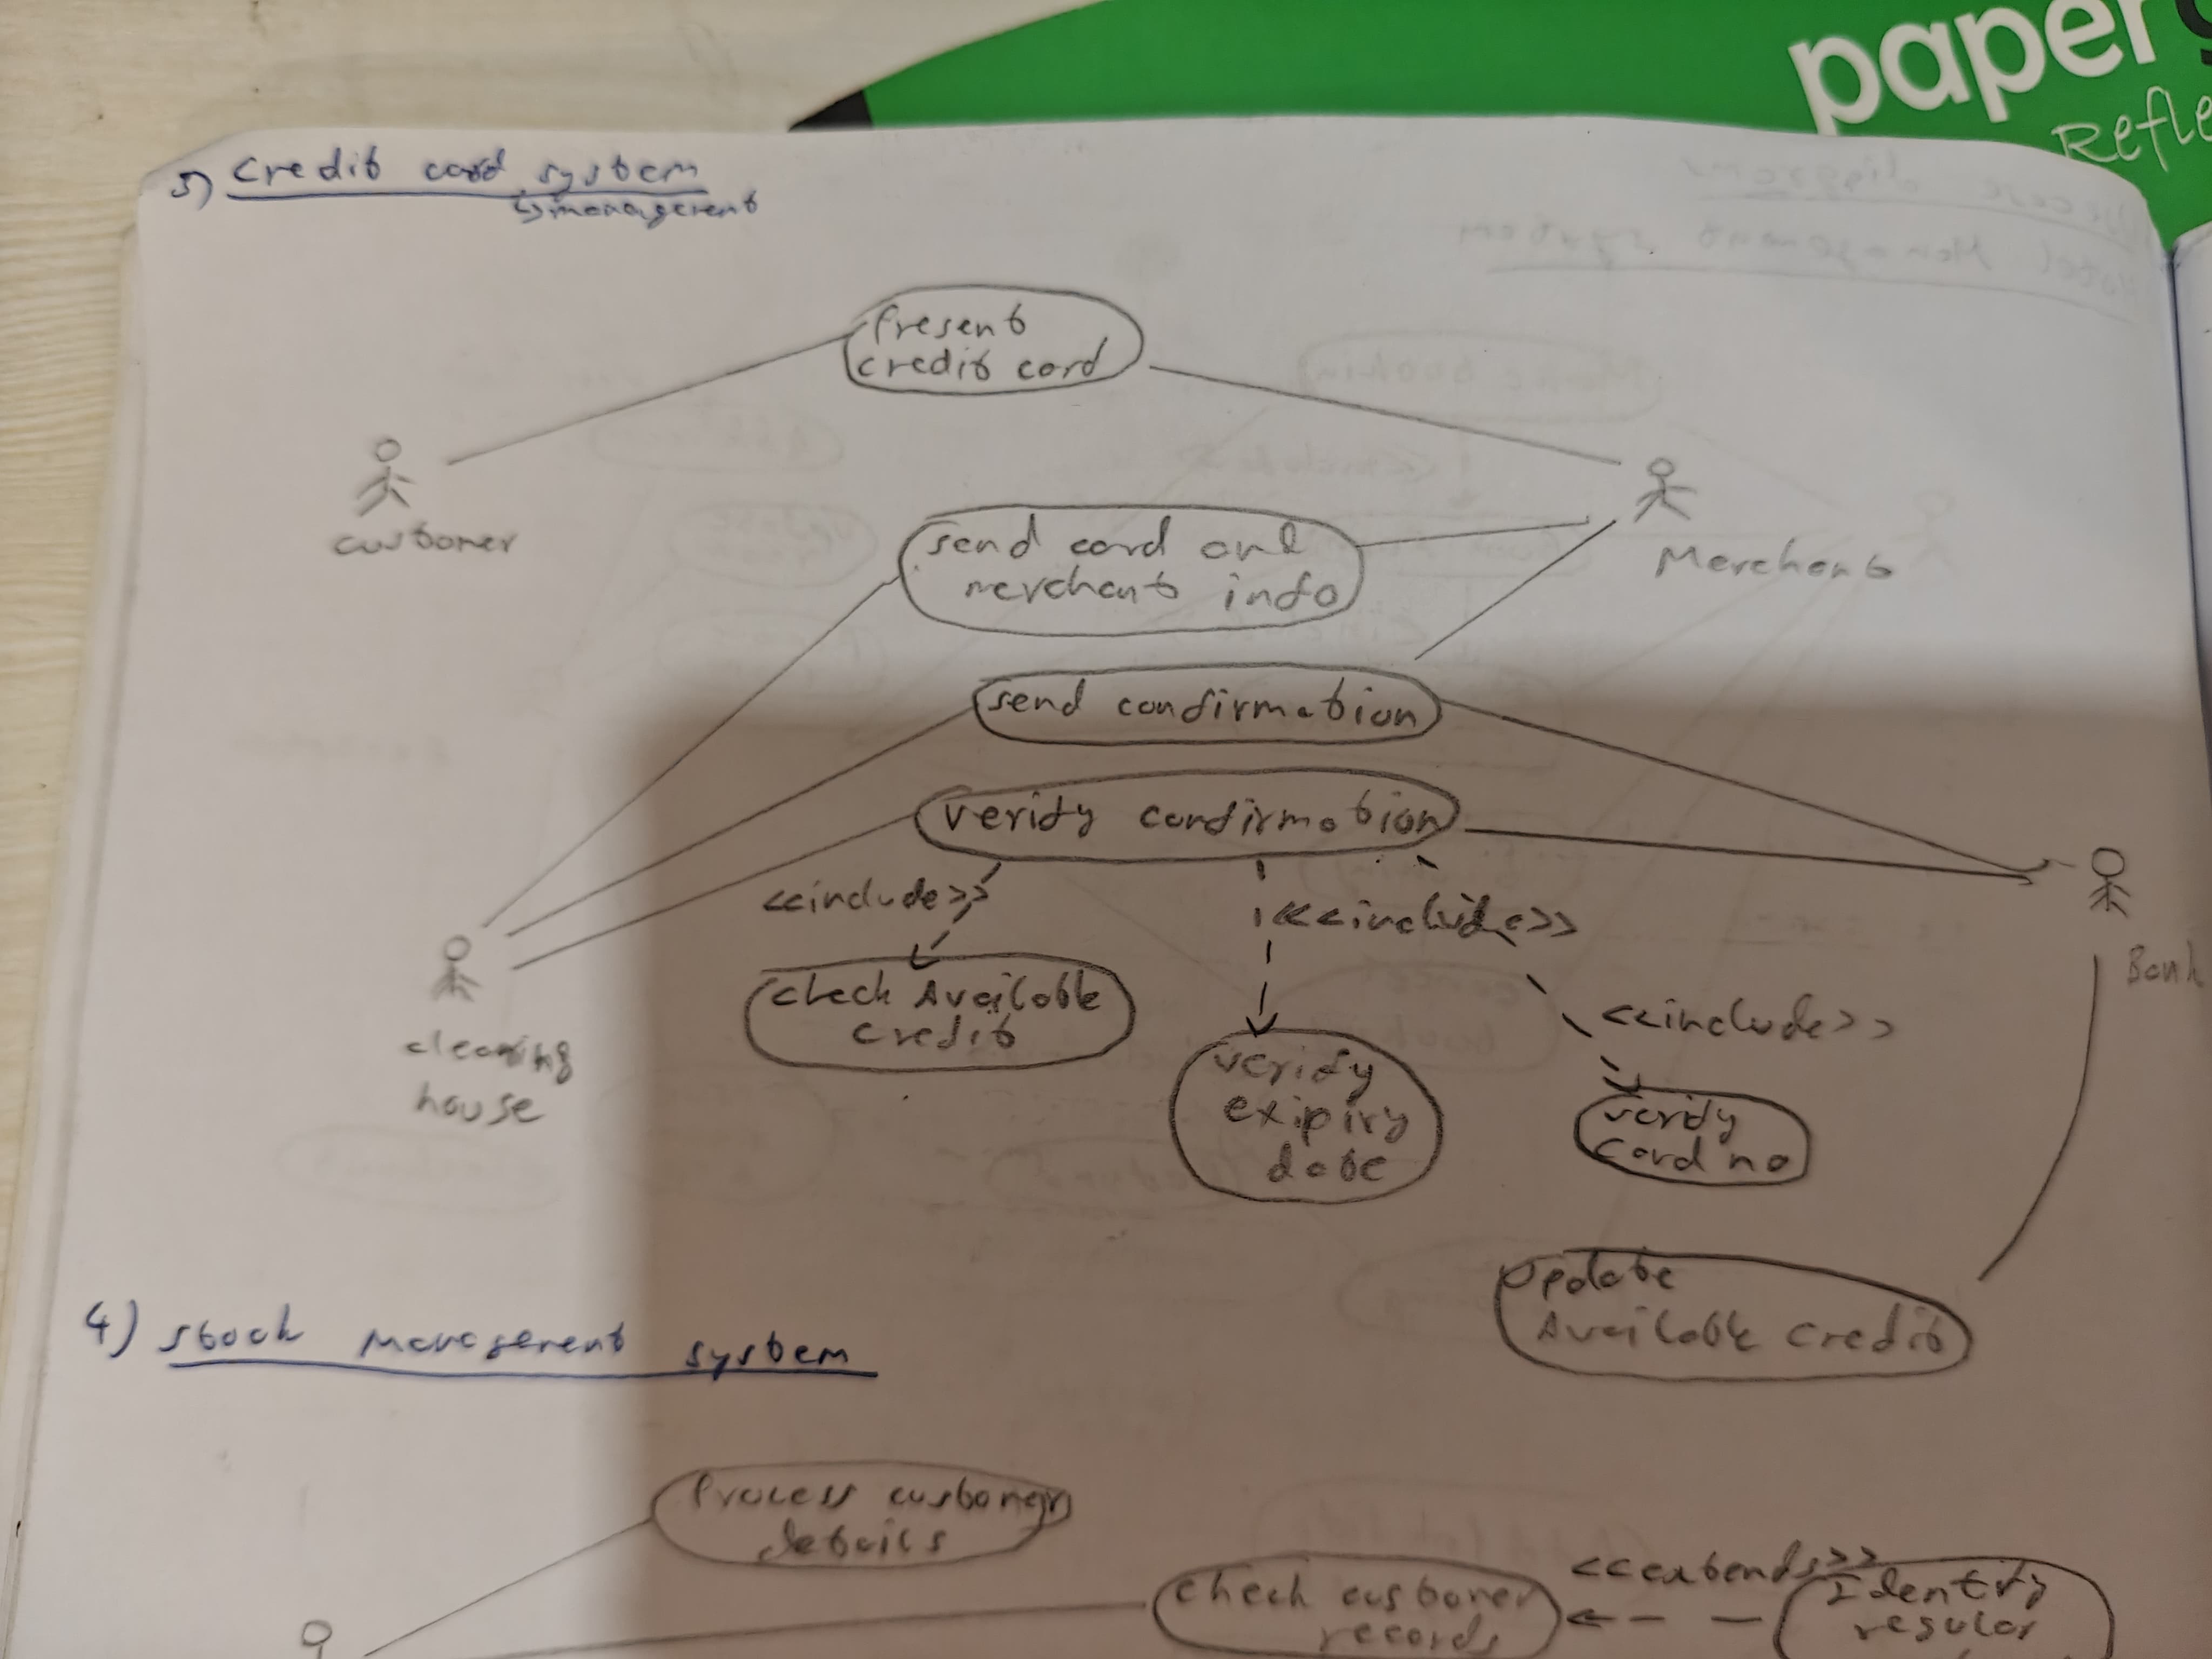 paper
Refle
5) Credit card system
↳ management
Present
credit card
customer
Merchant
send card and
merchant info
send confirmation
verify confirmation
<<include>>
<<include>>
Bank
check Available
credit
<<include>>
clearing
house
verify
exipiry
date
verify
card no
Update
Available credit
4) stock management system
Process customer
details
check customer
records
<<extends>>
Identify
regular